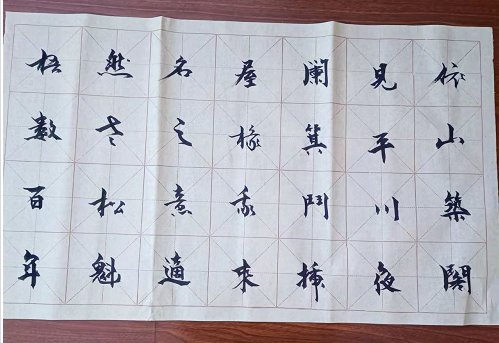 依山築閣
見平川夜
闌箕鬥插
屋椽我來
名之意適
然老松魁
梧數百年